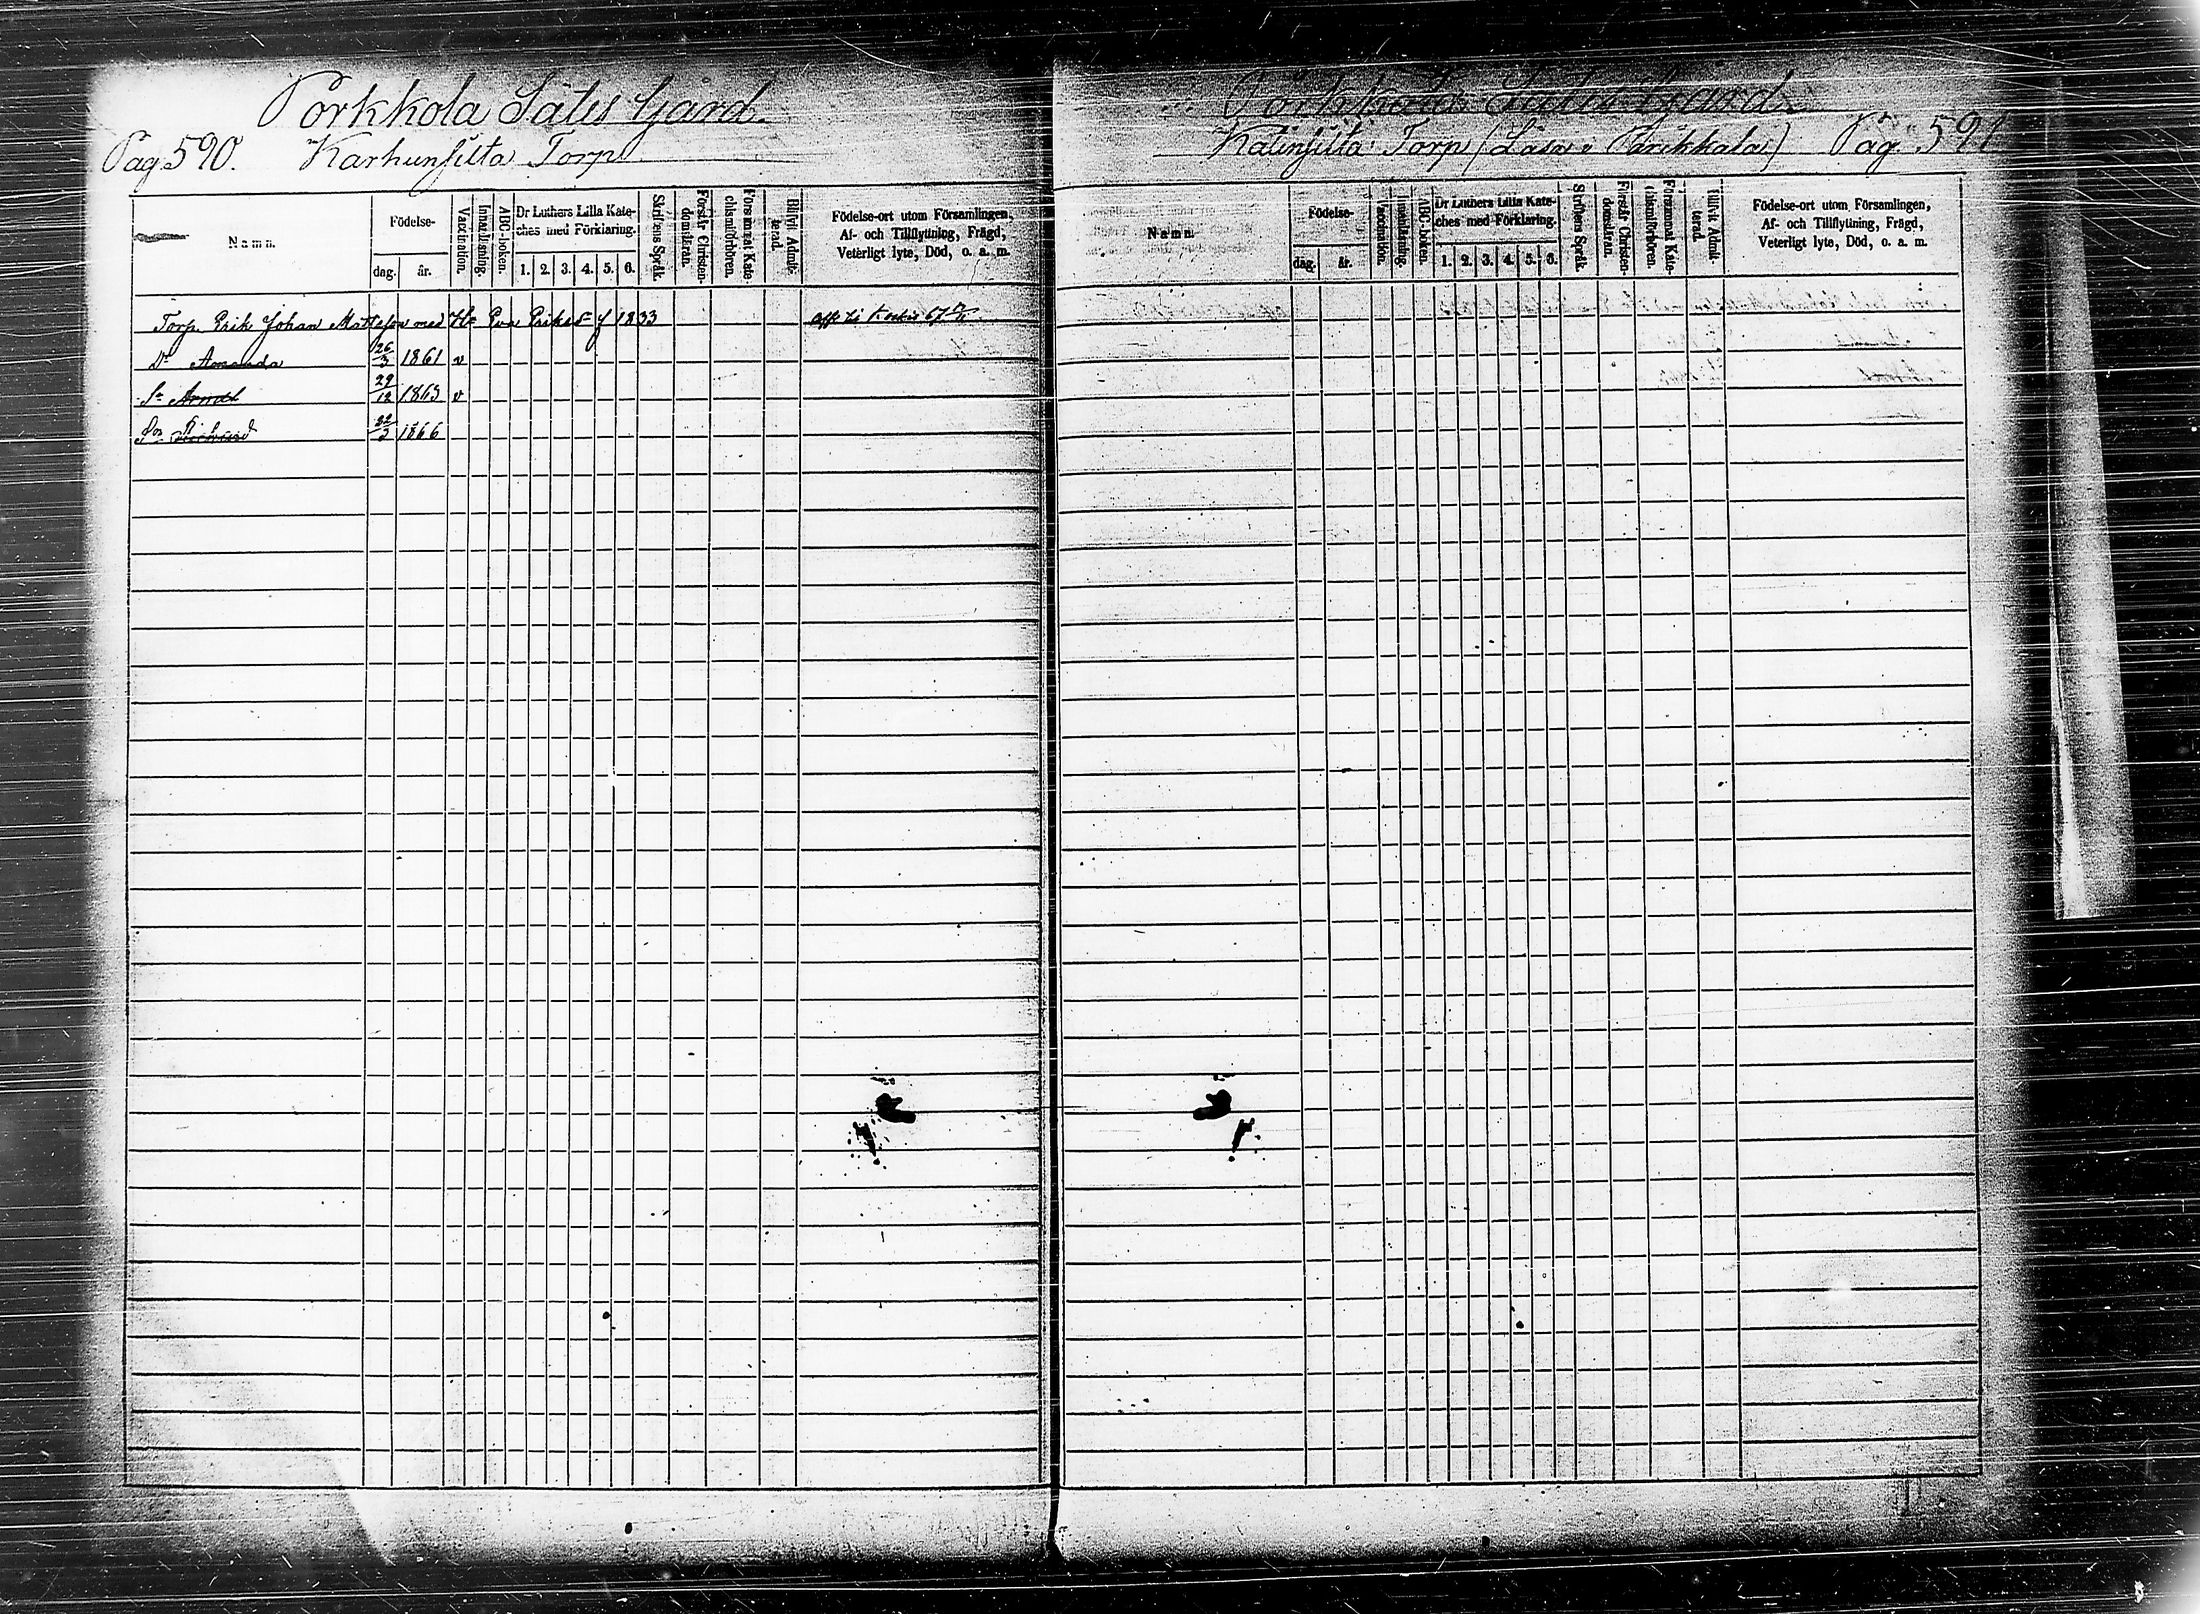 Porkkola Sätes Gård.
Pag. 590. Karhunsilta Torp
Namn.
Födelse-
dag. år.
Vaccination.
Innanläsning.
ABC-boken.
Dr Luthers Lilla Kate-
ches med Förklaring.
1. 2. 3. 4. 5. 6.
Skriftens Språk.
Förstår Christen-
domsläran.
Försummat Kate-
chismiförhören.
Blifvit Admit-
terad.
Födelse-ort utom Församlingen,
Af- och Tillflyttning, Frägd,
Veterligt lyte, Död, o. a. m.
Torp. Erik Johan Matsson med H Eva Eriksd f 1833
Dr Amanda 26/3 1861 v
Sn Arvid 29/12 1863 v
Son Richard 22/3 1866
Sätes Gård
Torp (Läsa i Parikkala) Pag. 591
Namn.
Födelse-
dag. år.
Vaccination.
Innanläsning.
ABC-boken.
Dr Luthers Lilla Kate-
ches med Förklaring.
1. 2. 3. 4. 5. 6.
Skriftens Språk.
Förstår Christen-
domsläran.
Försummat Kate-
chismiförhören.
Blifvit Admit-
terad.
Födelse-ort utom Församlingen,
Af- och Tillflyttning, Frägd,
Veterligt lyte, Död, o. a. m.